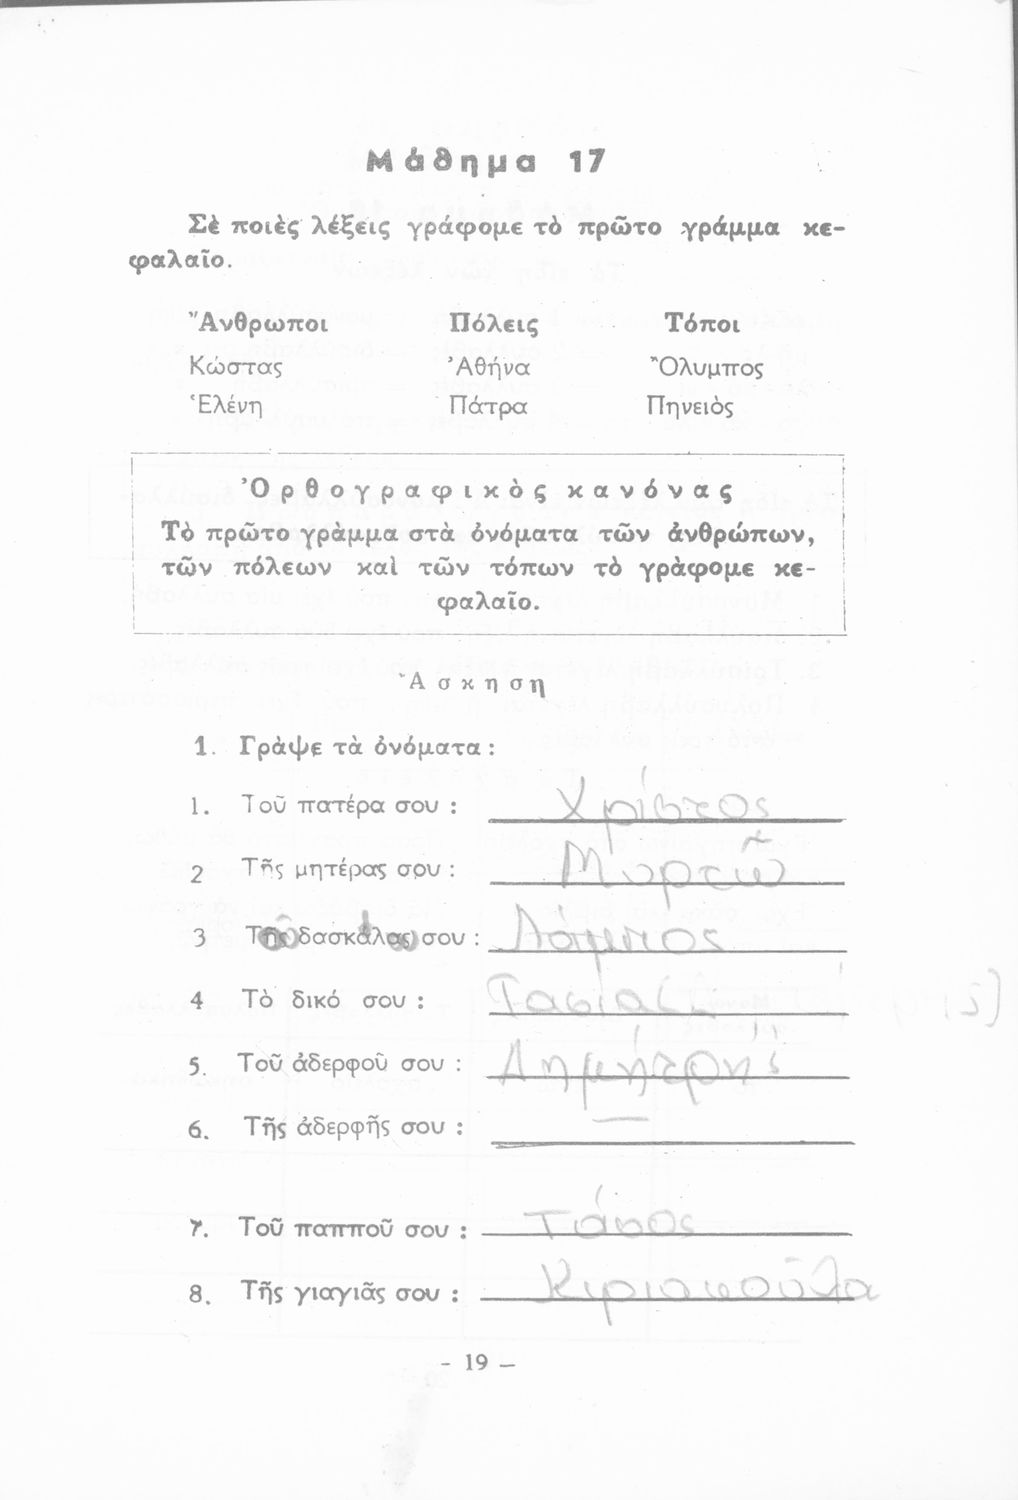 Μάθημα 17
Σὲ ποιὲς λέξεις γράφομε τὸ πρῶτο γράμμα κε-
φαλαῖο.
Ἄνθρωποι Πόλεις Τόποι
Κώστας Ἀθήνα Ὄλυμπος
Ἑλένη Πάτρα Πηνειὸς
Ὀρθογραφικὸς κανόνας
Τὸ πρῶτο γράμμα στὰ ὀνόματα τῶν ἀνθρώπων,
τῶν πόλεων καὶ τῶν τόπων τὸ γράφομε κε-
φαλαῖο.
Ἄσκηση
1. Γράψε τὰ ὀνόματα :
1. Τοῦ πατέρα σου : Χρίστος
2 Τῆς μητέρας σου : Μυρτῶ
3 δασκάλου σου : Λάμπος
4 Τὸ δικό σου :
5. Τοῦ ἀδερφοῦ σου : Δημήτρης
6. Τῆς ἀδερφῆς σου : —
7. Τοῦ παπποῦ σου : Τάσος
8. Τῆς γιαγιᾶς σου : Κιριακοῦλα
- 19 -